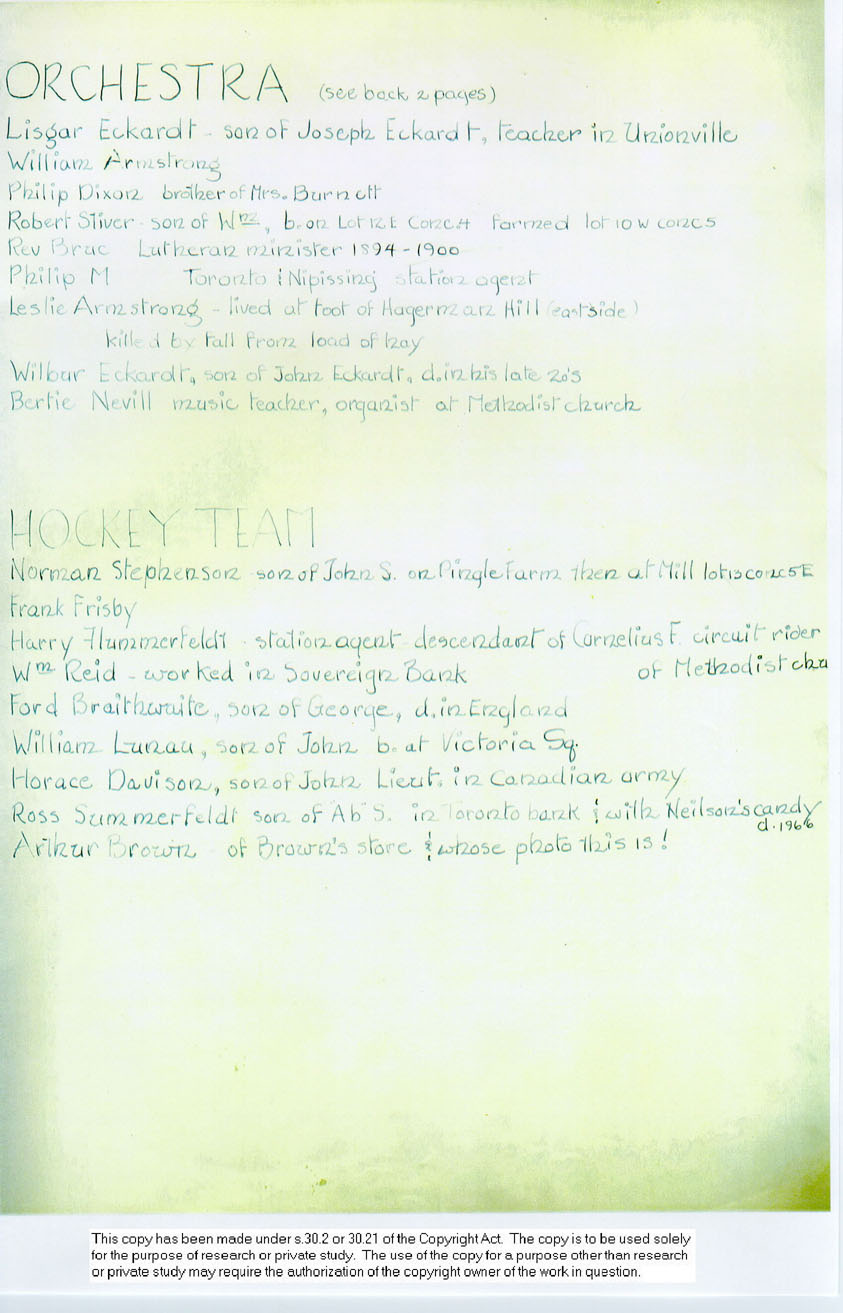 ORCHESTRA (see back 2 pages)
Lisgar Eckardt - son of Joseph Eckardt, teacher in Unionville
William Armstrong
Philip Dixon brother of Mrs. Burnett
Robert Stiver - son of Wm, b. on Lot 12 E Conc 4 farmed lot 10 W conc 5
Rev Lutheran minister 1894 - 1900
Philip M Toronto & Nipissing station agent
Leslie Armstrong - lived at foot of Hagerman Hill (east side)
killed by fall from load of hay
Wilbur Eckardt, son of John Eckardt, d. in his late 20's
Bertie Nevill music teacher, organist at Methodist church
HOCKEY TEAM
Norman Stephenson - son of John S. on Pingle Farm then at Mill lot 13 conc 5 E
Frank Frisby
Harry Flummerfeldt - station agent - descendant of Cornelius F. circuit rider
Wm Reid - worked in Sovereign Bank of Methodist chu
Ford Braithwaite, son of George, d. in England
William Lunau, son of John b. at Victoria Sq.
Horace Davison, son of John Lieut. in Canadian army
Ross Summerfeldt son of Ab S. in Toronto bank & with Neilson's candy
d. 1966
Arthur Brown of Brown's store & whose photo this is!
This copy has been made under s.30.2 or 30.21 of the Copyright Act. The copy is to be used solely
for the purpose of research or private study. The use of the copy for a purpose other than research
or private study may require the authorization of the copyright owner of the work in question.